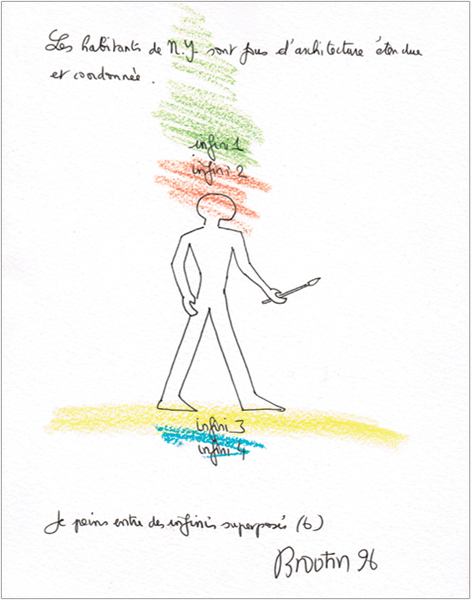 Les habitants de N.Y. sont fous d'architecture étendue
et coordonnée.
infini 1
infini 2
infini 3
infini 4
Je peins entre des infinis superposés (6)
Broutin 96